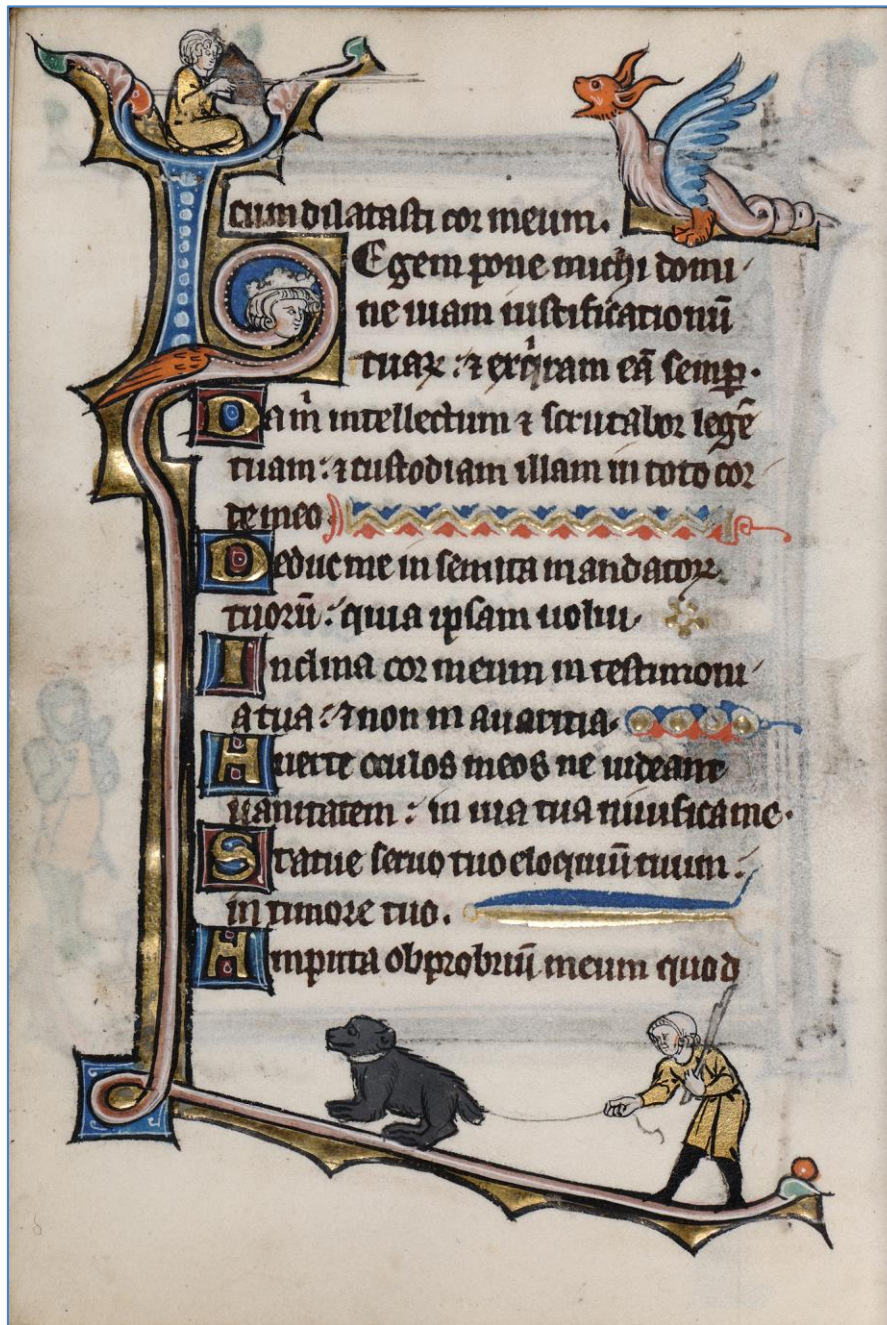 cum dilatasti cor meum.
Egem pone michi domi
ne uiam iustificationū
tuaꝝ : ⁊ exqͥram eā semꝑ.
Da m̍ intellectum ⁊ scrutabor legē
tuam : ⁊ custodiam illam in toto cor
de meo
Deduc me in semita mandatoꝝ
tuorū : quia ipsam uolui
Inclina cor meum in testimoni
a tua : ⁊ non in auaritia.
Auerte oculos meos ne uideant
uanitatem : in uia tua uiuifica me.
Statue seruo tuo eloquiū tuum :
in timore tuo.
Amputa obprobriū meum quod